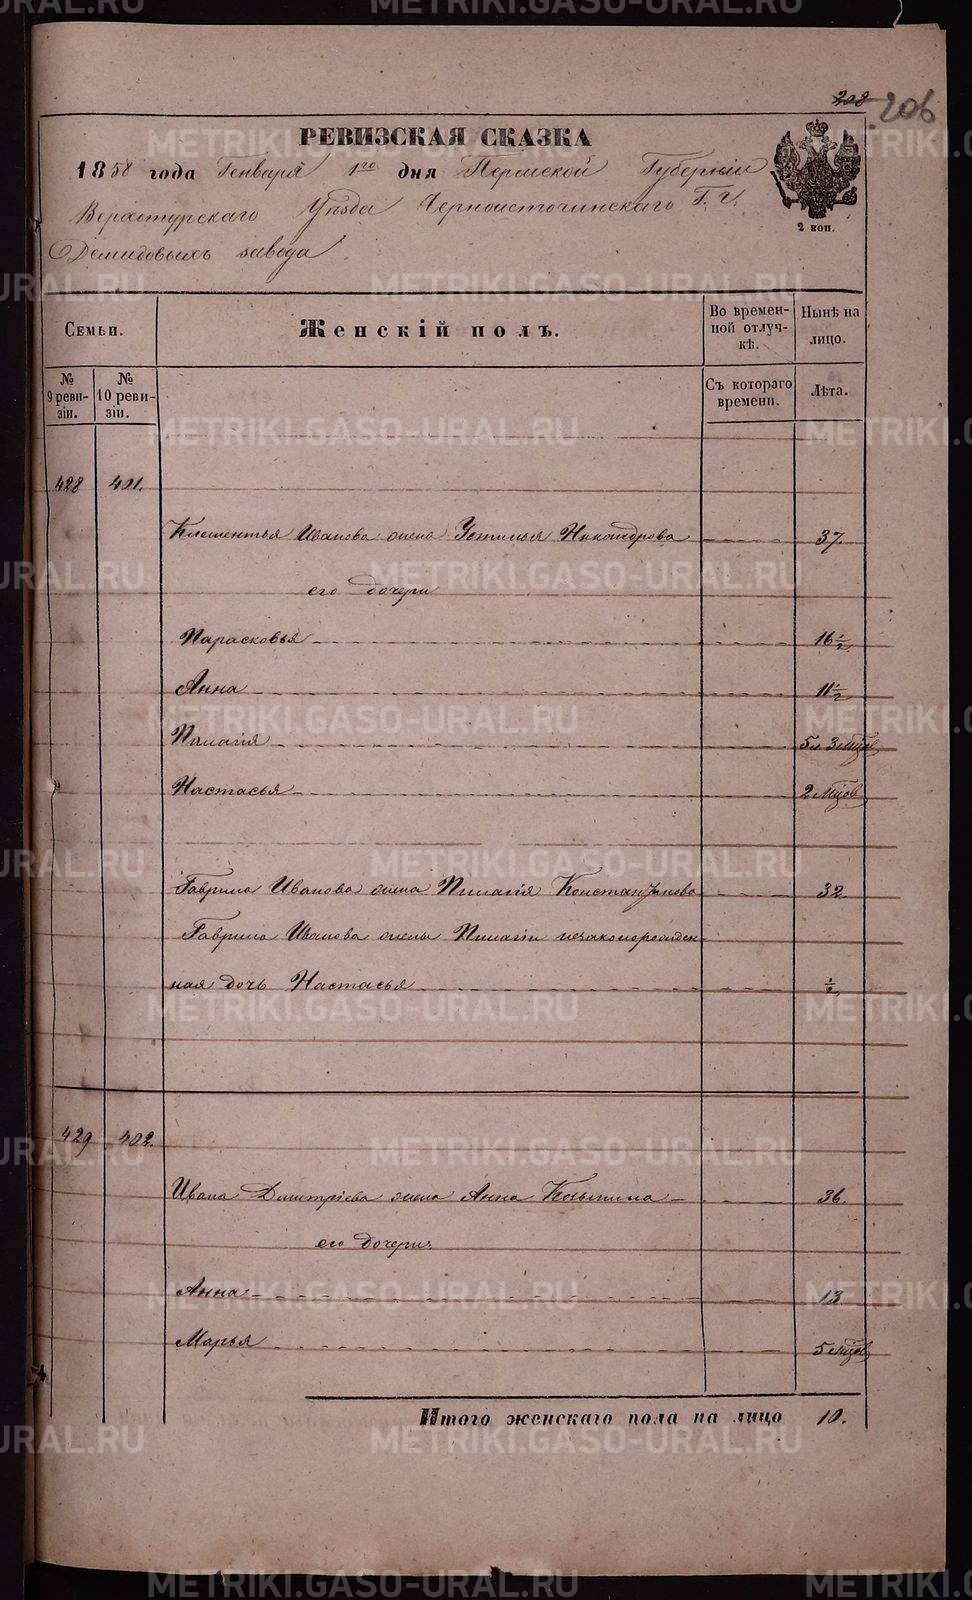 208 206
РЕВИЗСКАЯ СКАЗКА
1858 года Генваря 1го дня Пермской Губернии
Верхотурскаго Уѣзда Черноисточинскаго Г.г.
Демидовыхъ завода
2 коп.
Семьи.
Женскій полъ.
Во временной отлучкѣ.
Нынѣ на лицо.
№ 9 ревизіи.
№ 10 ревизіи.
Съ котораго времени.
Лѣта.
428 401.
Клементья Иванова жена Устинья Никандрова 37.
его дочери
Парасковья 16 1/2
Анна 11 1/2
Палагія 5 л. 3 мѣсѣ
Настасья 2 мѣсов
Гаврила Иванова жена Пилагія Константинова 32.
Гаврила Иванова жены Пилагіи незаконорожден-
ная дочь Настасья 1/2
429 402.
Ивана Дмитріева жена Анна Козьмина 36.
его дочери:
Анна 13
Марья 5 мѣсѣ
Итого женскаго пола на лицо 10.
METRIKI.GASO-URAL.RU